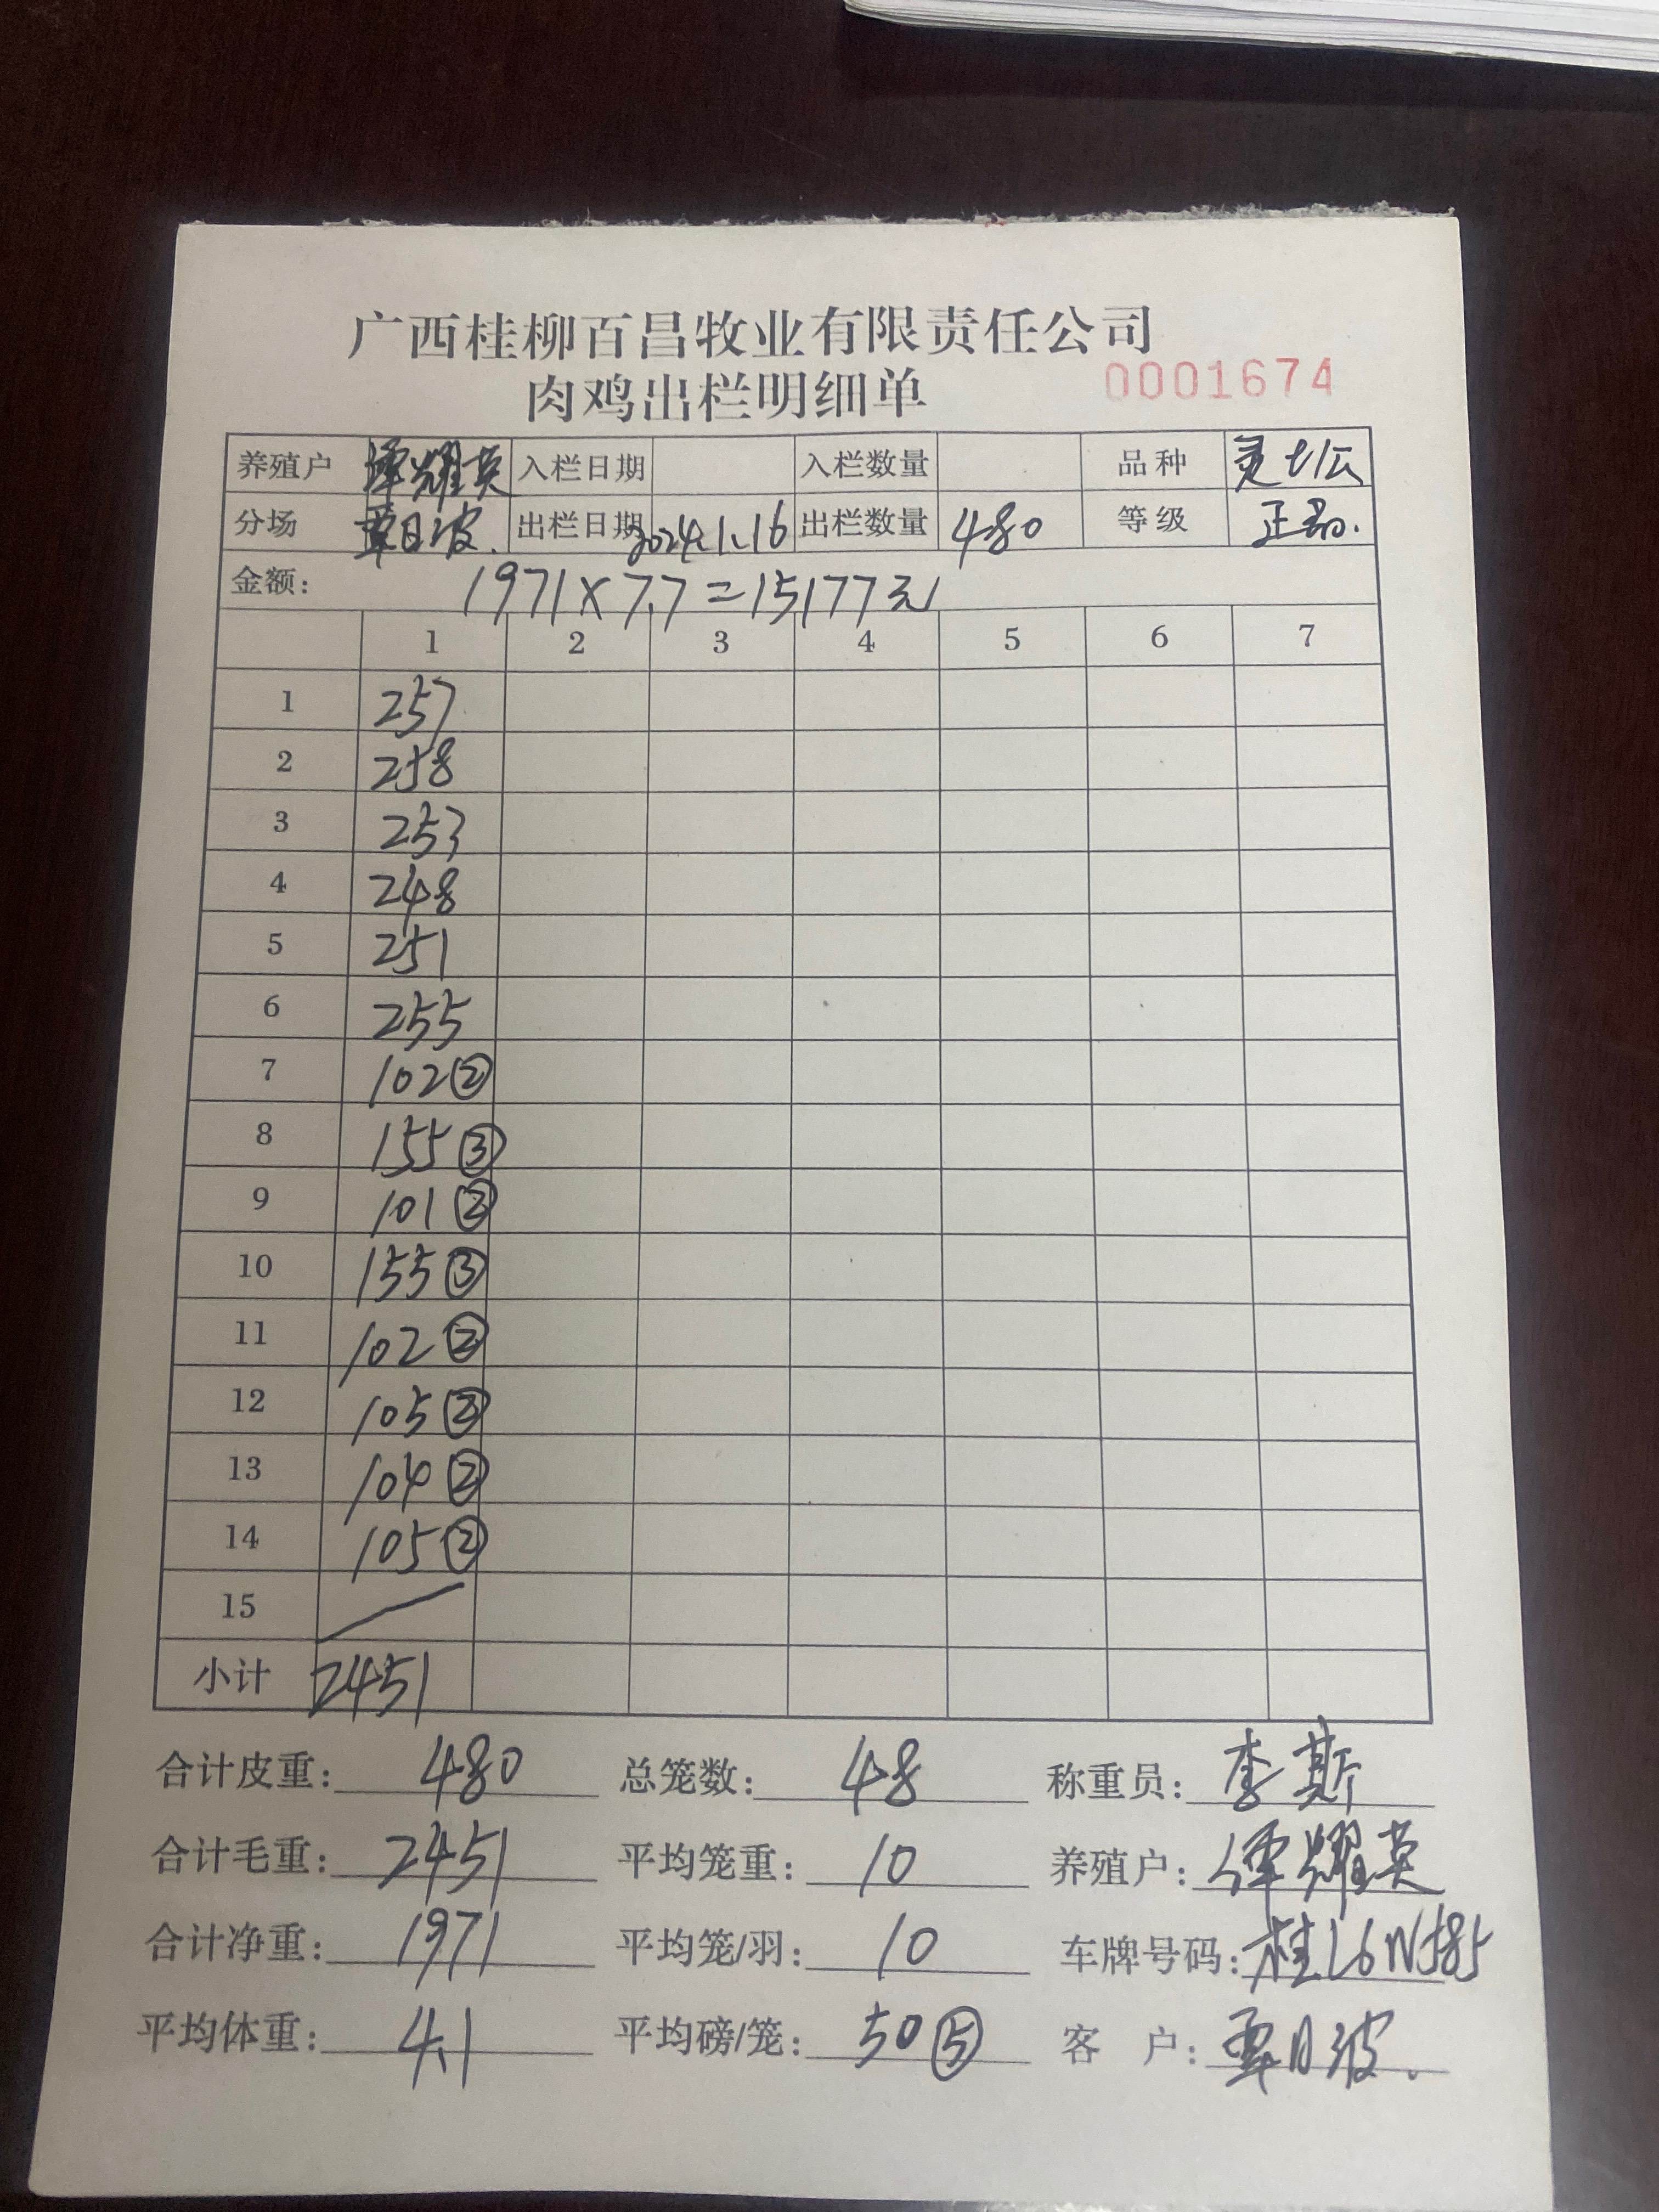 广西桂柳百昌牧业有限责任公司
肉鸡出栏明细单 0001674
养殖户 谭耀英 入栏日期 入栏数量 品种
分场 覃日波. 出栏日期 2024.1.16 出栏数量 480 等级 正品.
金额: 1971×7.7=15177元
1 2 3 4 5 6 7
1 257
2 258
3 253
4 248
5 251
6 255
7 102②
8 155③
9 101②
10 155③
11 102②
12 105②
13 104②
14 105②
15
小计 2451
合计皮重: 480 总笼数: 48 称重员: 李斯
合计毛重: 2451 平均笼重: 10 养殖户: 谭耀英
合计净重: 1971 平均笼/羽: 10 车牌号码: 桂L6N585
平均体重: 4.1 平均磅/笼: 50⑤ 客 户: 覃日波.